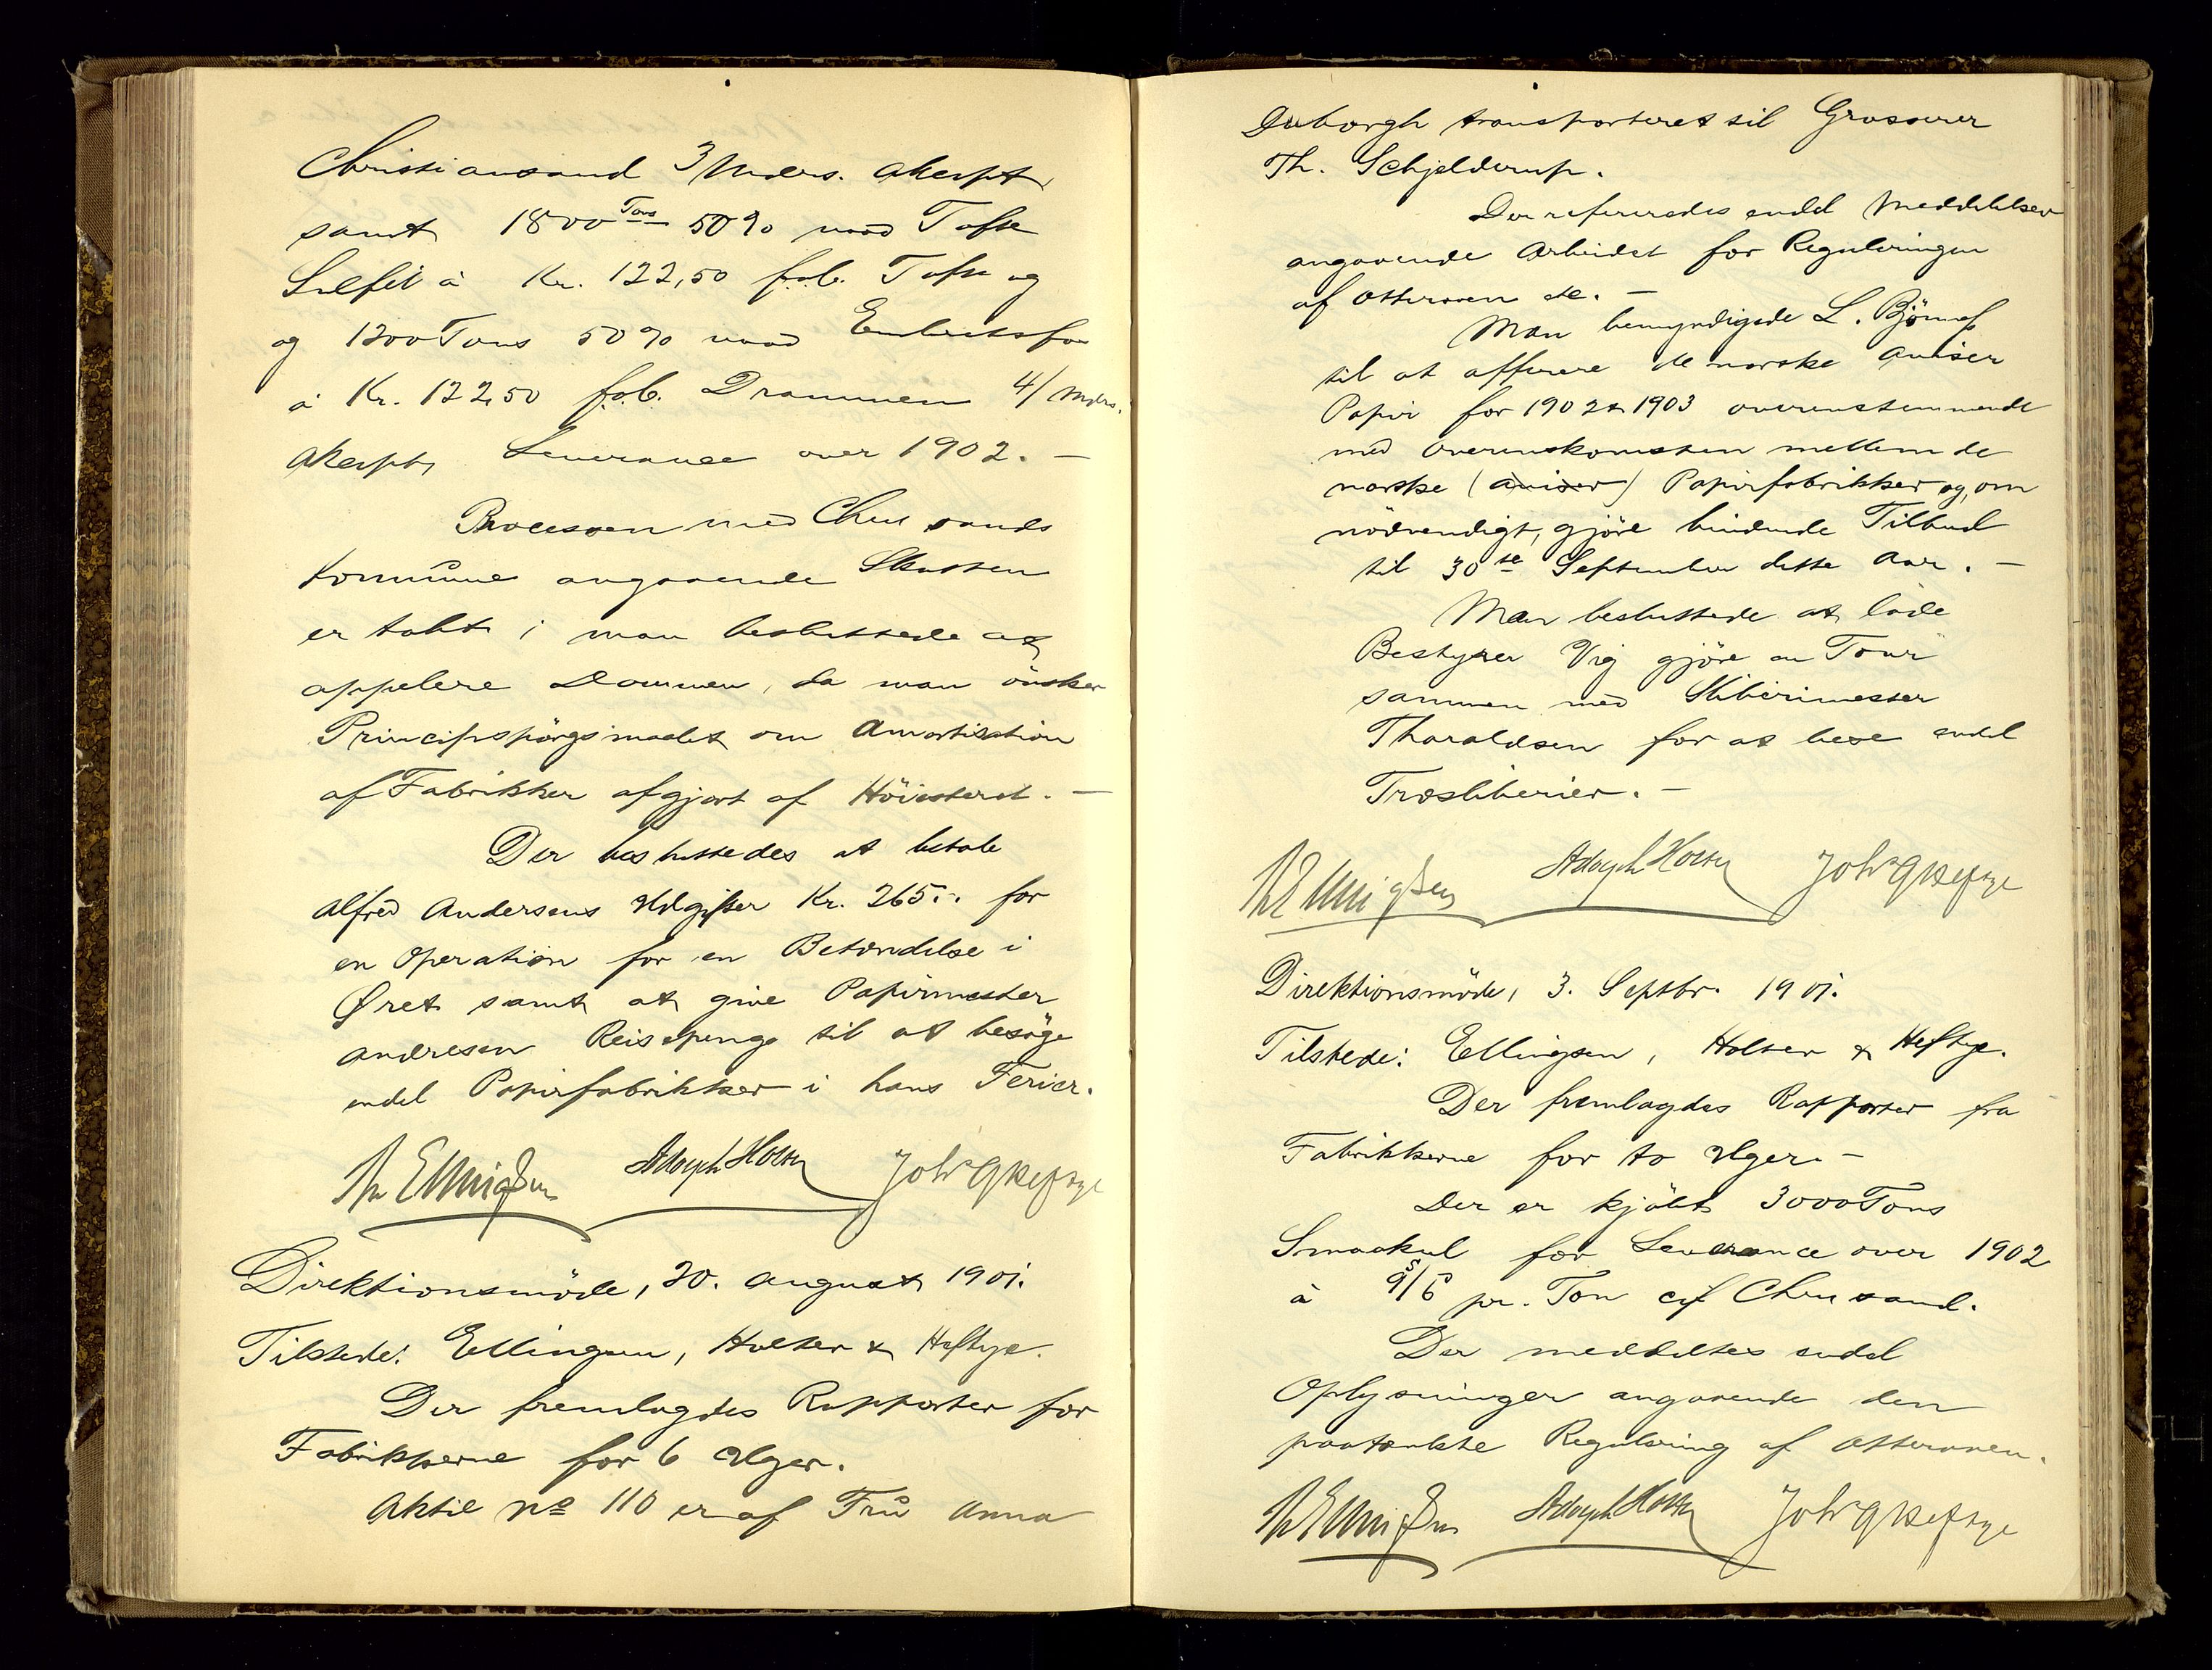 Christiansand 3/Mdrs. Akcept,
samt 1800 Tons 50% vaad Tofte
Sulfit à Kr. 122,50 f.o.b. Tofte og
og 1200 Tons 50% vaad Embretsfos
à Kr. 122,50 f.o.b. Drammen 4/Mdrs.
Akcept, Leverance over 1902. —
Processen med Chrsands
Kommune angaaende Skatten
er tabt; man besluttede at
appelere Dommen, da man önsker
Principspörgsmaalet om Amortisation
af Fabrikker afgjort af Höiesteret. —
Der besluttedes at betale
Alfred Andersens Udgifter Kr. 265.- for
en Operation for en Betændelse i
Øret samt at give Papirmester
Andresen Reisepenge til at besöge
endel Papirfabrikker i hans Ferier.
Ellingsen Adolph Holter Joh G Heftye
Direktionsmöde, 20. August 1901.
Tilstede: Ellingsen, Holter & Heftye.
Der fremlagdes Rapporter for
Fabrikkerne for 6 Uger.
Aktie No 110 er af Fru Anna
Duborgh transporteret til Grosserer
Th. Schjelderup.
Der refereredes endel Meddelelser
angaaende Arbeidet for Reguleringen
af Otteraaen de. —
Man bemyndigede L. Björnef
til at offerere de norske Aviser
Papir for 1902 & 1903 overenstemmende
med Overenskomsten mellem de
norske (Aviser) Papirfabrikker og, om
nödvendigt, gjöre bindende Tilbud
til 30te September dette Aar. —
Man besluttede at lade
Bestyrer Vig gjöre en Tour
sammen med Sliberimester
Tharaldsen for at bese endel
Træsliberier. —
Ellingsen Adolph Holter Joh G Heftye
Direktionsmöde, 3. Septbr. 1901.
Tilstede: Ellingsen, Holter & Heftye.
Der fremlagdes Rapporter fra
Fabrikkerne for to Uger. —
Der er kjöbt 3000 Tons
Smaakul for Leverance over 1902
à 9s/6p pr. Ton cif Chrsand.
Der meddeltes endel
Oplysninger angaaende den
paatænkte Regulering af Otteraaen.
Ellingsen Adolph Holter Joh G Heftye